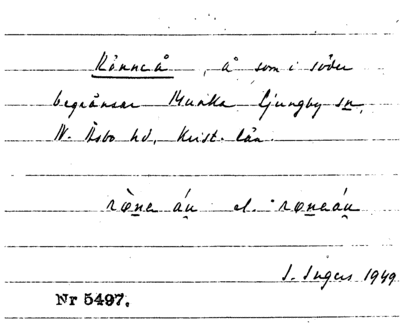 Rönneå, å som i söder
begränsar Munka Ljungby sn,
N. Åsbo hd, Krist. län.
el.
I. Ingers 1949
Nr 5497.